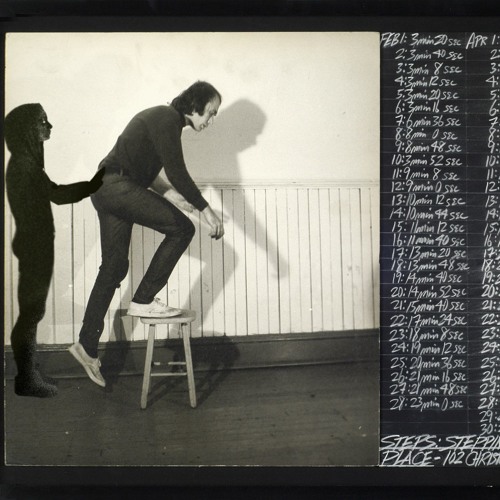 FEB 1: 3min 20 SEC APR 1:
2: 3min 40 SEC 2:
3: 3min 8 SEC 3:
4: 3min 12 SEC 4:
5: 3min 20 SEC 5:
6: 3min 16 SEC 6:
7: 6min 36 SEC 7:
8: 8min 0 SEC 8:
9: 8min 48 SEC 9:
10: 3min 52 SEC 10:
11: 9min 8 SEC 11:
12: 9min 0 SEC 12:
13: 10min 12 SEC 13:
14: 10min 44 SEC 14:
15: 11min 12 SEC 15:
16: 11min 40 SEC 16:
17: 13min 20 SEC 17:
18: 13min 48 SEC 18:
19: 14min 40 SEC 19:
20: 14min 52 SEC 20:
21: 15min 40 SEC 21:
22: 17min 24 SEC 22:
23: 18min 8 SEC 23:
24: 19min 12 SEC 24:
25: 20min 36 SEC 25:
26: 21min 16 SEC 26:
27: 21min 48 SEC 27:
28: 23min 0 SEC 28:
29:
30:
STEPS: STEPPIN
PLACE - 102 CHRIST